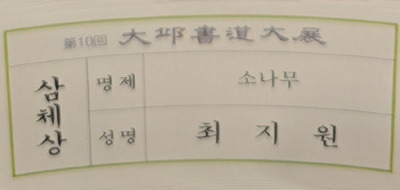 第10回 大邱書道大展
삼체상
명제 소나무
성명 최지원